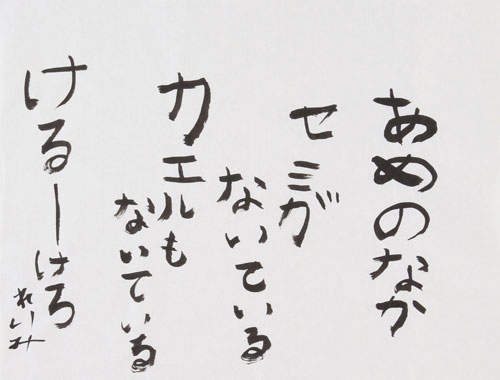 あめのなか
セミが
ないている
カエルも
ないている
けるーけろ
れいみ